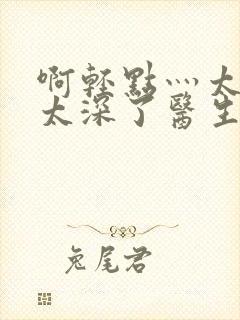 啊輕點灬太
太深了醫生
兔尾君